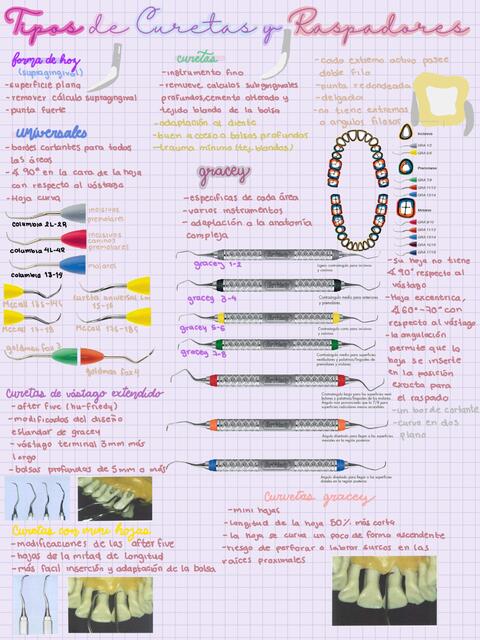 Tipos de Curetas y Raspadores
forma de hoz
(supragingival)
-superficie plana
-remover cálculo supragingival
-punta fuerte
curetas
-instrumento fino
-remueve calculos subgingivales
profundos, cemento alterado y
tejido blando de la bolsa
-adaptación al diente
-buen acceso a bolsas profundas
-trauma mínimo (tej. blandos)
-cada extremo activo posee
doble filo
-punta redondeada
-delgada
-no tiene extremos
o angulos filosos
universales
-bordes cortantes para todas
las áreas
-∡ 90° en la cara de la hoja
con respecto al vástago
-Hoja curva
columbia 2L-2R
incisivos
premolares
columbia 4L-4R
incisivos
canino
premolares
columbia 13-14
molares
gracey
-especificas de cada área
-varios instrumentos
-adaptación a la anatomía
compleja
gracey 1-2
gracey 3-4
gracey 5-6
gracey 7-8
Incisivos
Premolares
Molares
-su hoja no tiene
∡90° respecto al
vástago
-Hoja excentrica,
∡60°-70° con
respecto al vástago
-la angulación
permite que la
hoja se inserte
en la posición
exacta para
el raspado
-un borde cortante
-curva en dos
plano
goldman fox 3
goldman fox 4
Curetas de vástago extendido
-after five (hu-friedy)
-modificadas del diseño
estandar de gracey
-vástago terminal 3mm más
largo
-bolsas profundas de 5mm o más
Curetas con mini hojas
-modificaciones de las after five
-hojas de la mitad de longitud
-más facil inserción y adaptación de la bolsa
Curvetas gracey
-mini hojas
-longitud de la hoja 50% más corta
-la hoja se curva un poco de forma ascendente
-riesgo de perforar o labrar surcos en las
raíces proximales